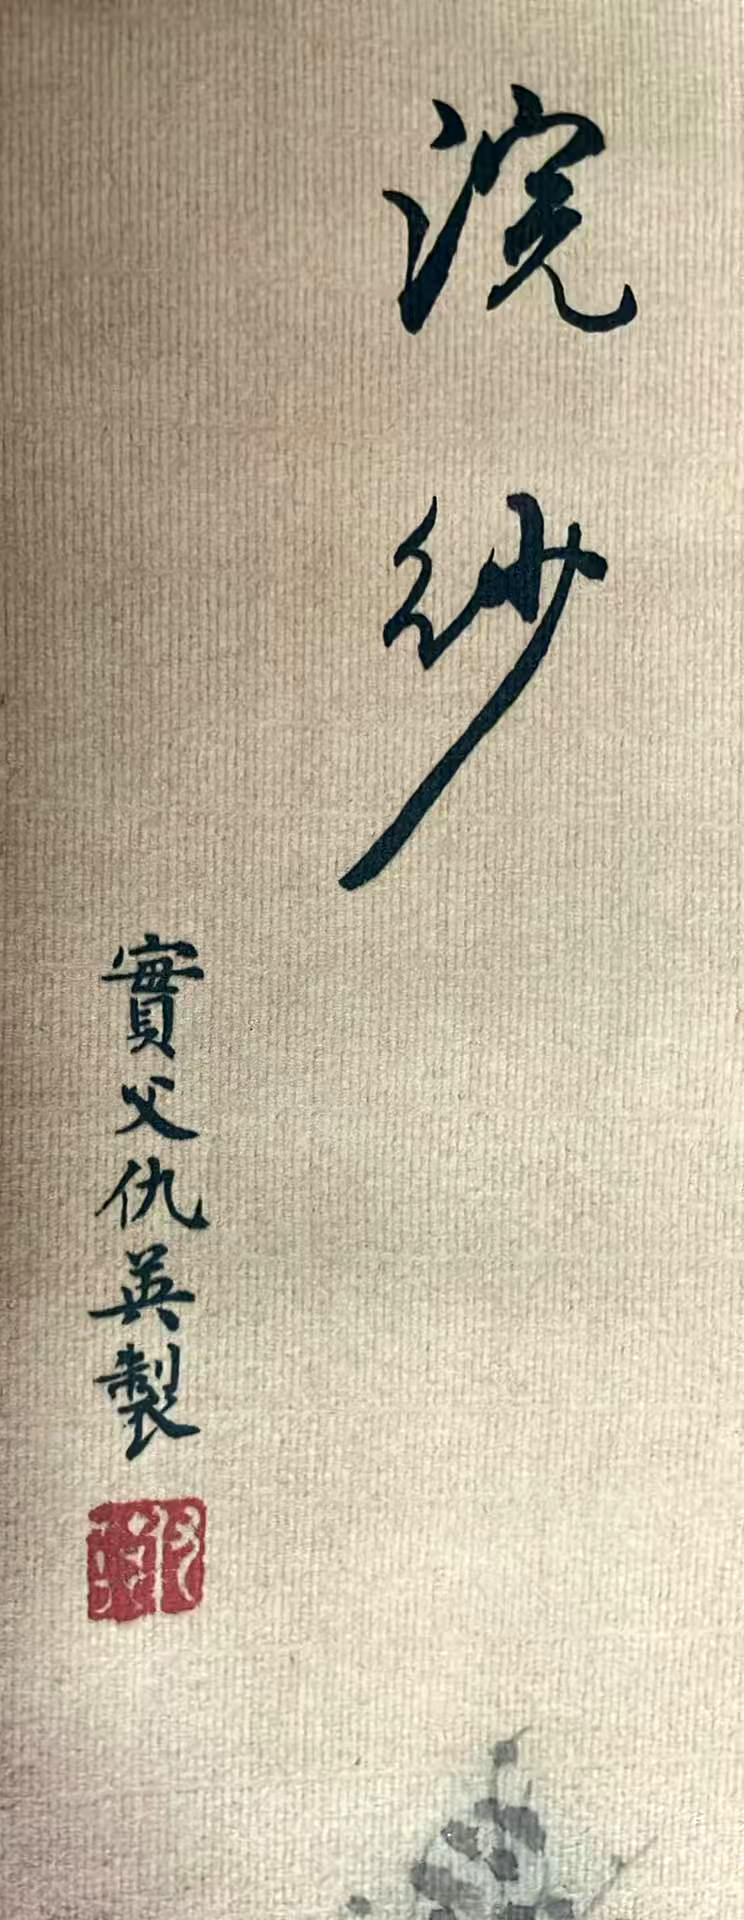 浣紗
實父仇英製